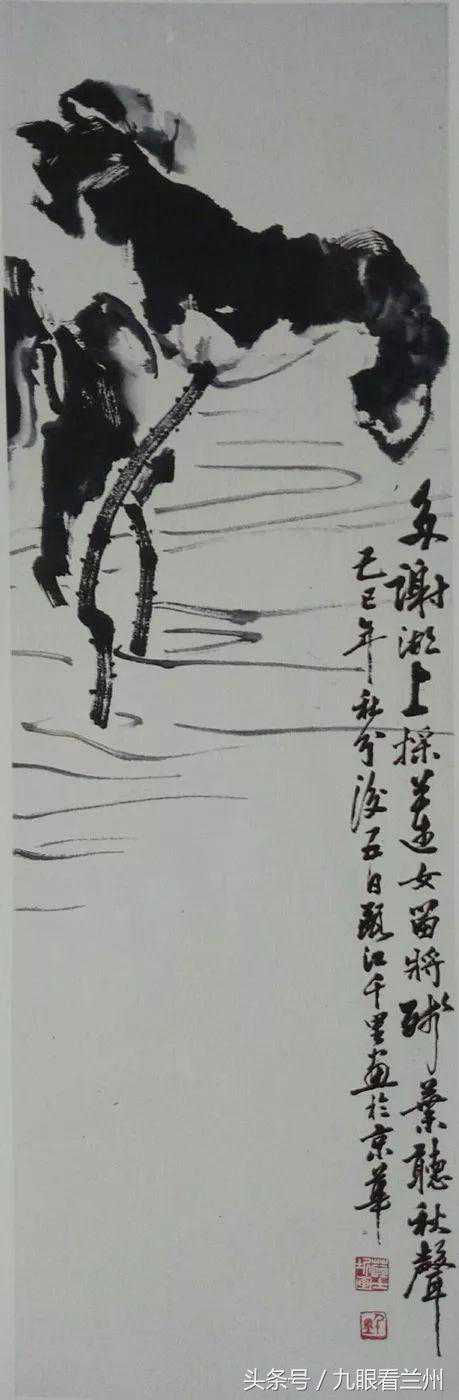 多謝湖上採蓮女留將殘葉聽秋聲
己巳年秋分後五日甌江千里畫於京華
头条号 / 九眼看兰州